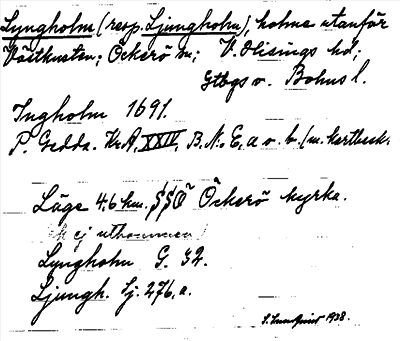 Lyngholm (resp. Ljungholm), holme utanför
Västkusten; Öckerö sn; V. Hisings hd;
Gtbgs o. Bohus l.
Jngholm 1691.
P. Gedda. KrA, XXIV, B. N:o E, a o. b. (m. kartbesk.
Läge 4.6 km. SSÖ Öckerö kyrka.
ej uthommen
Lyngholm G. 32.
Ljungh. Sj. 276, a.
1938.